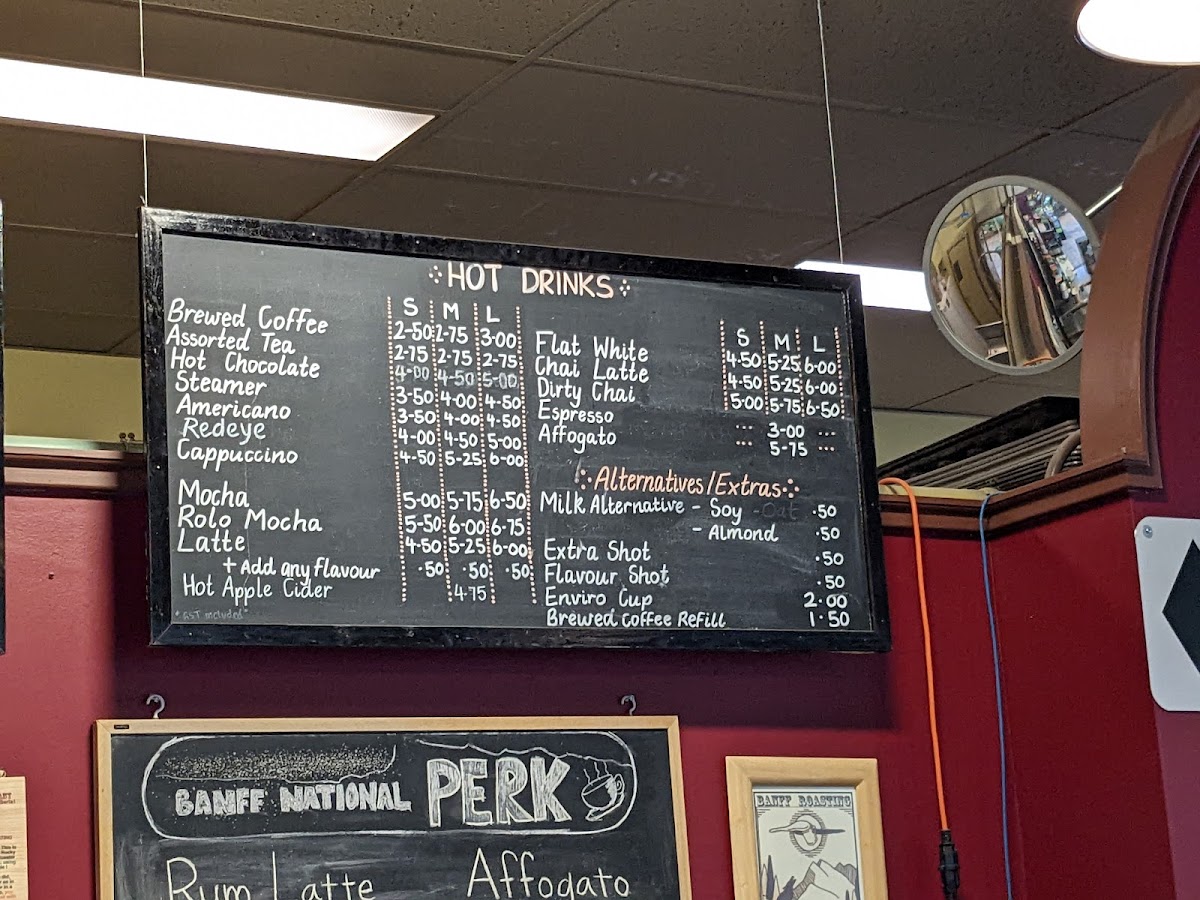 HOT DRINKS
S M L
Brewed Coffee 2-50 2-75 3-00
Assorted Tea 2-75 2-75 2-75
Hot Chocolate 4-00 4-50 5-00
Steamer 3-50 4-00 4-50
Americano 3-50 4-00 4-50
Redeye 4-00 4-50 5-00
Cappuccino 4-50 5-25 6-00
Mocha 5-00 5-75 6-50
Rolo Mocha 5-50 6-00 6-75
Latte 4-50 5-25 6-00
+ Add any flavour .50 .50 .50
Hot Apple Cider 4-75
*GST included*
S M L
Flat White 4-50 5-25 6-00
Chai Latte 4-50 5-25 6-00
Dirty Chai 5-00 5-75 6-50
Espresso --- 3-00 ---
Affogato --- 5-75 ---
Alternatives/Extras
Milk Alternative - Soy - Oat .50
- Almond .50
Extra Shot .50
Flavour Shot .50
Enviro Cup 2.00
Brewed Coffee Refill 1.50
BANFF NATIONAL PERK
Rum Latte Affogato
BANFF ROASTING